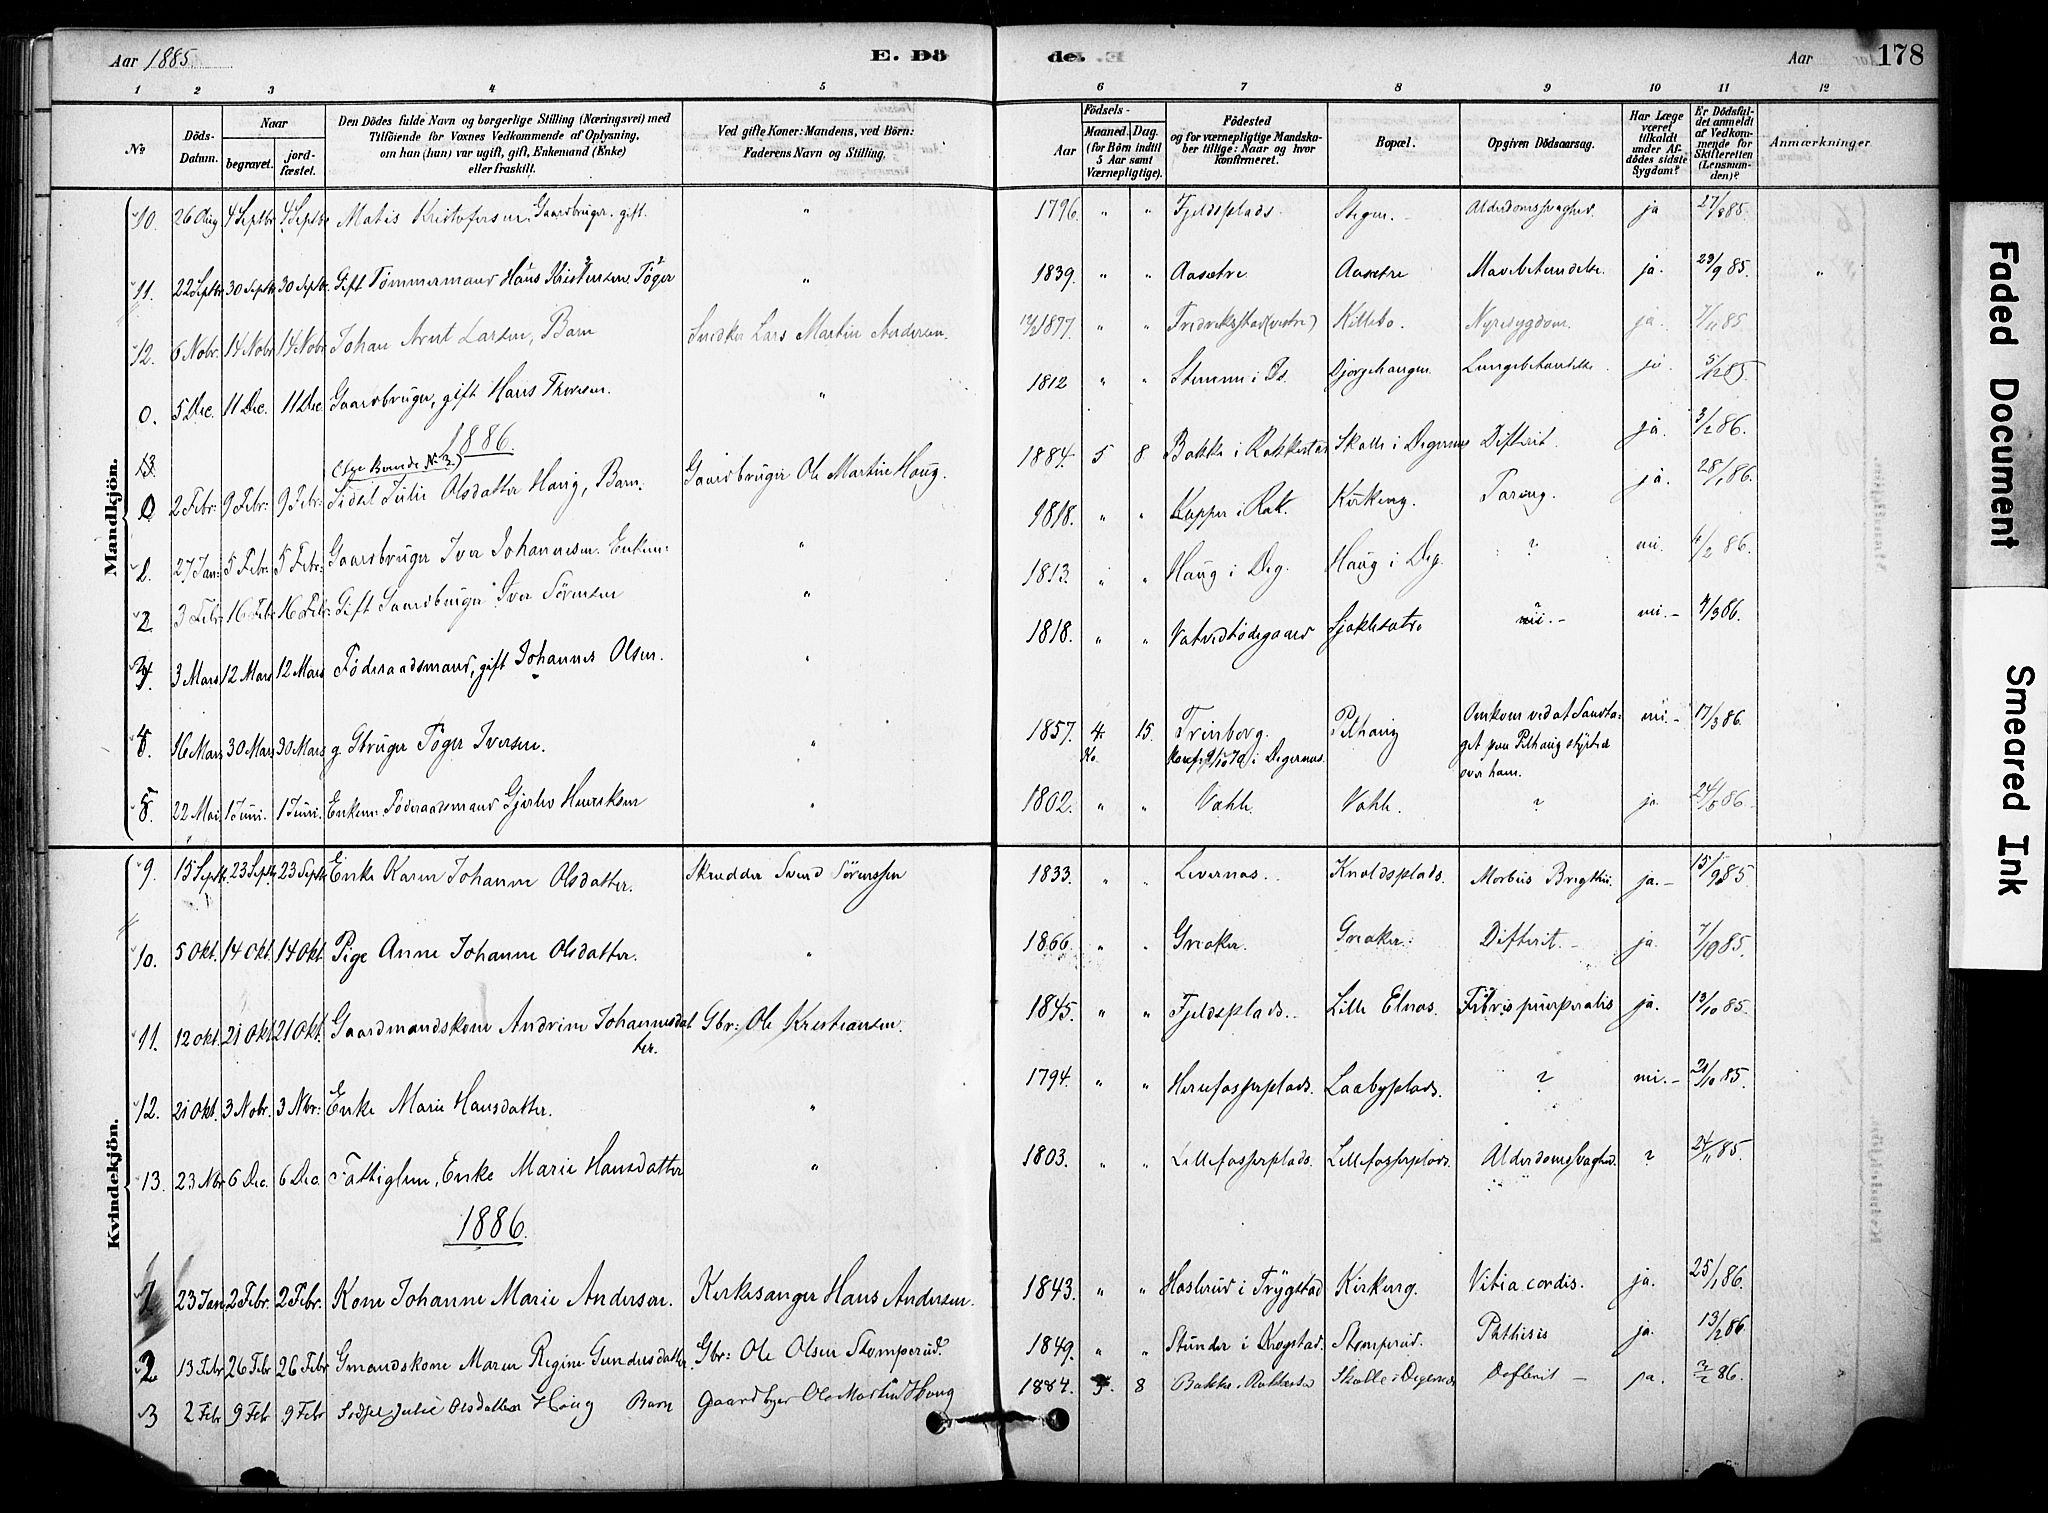 Aar 1885. E. Dö de. Aar 178
1 2 3 4 5 6 7 8 9 10 11 12
No Döds-Datum. Naar begravet. jordfæstet. Den Dödes fulde Navn og borgerlige Stilling (Næringsvei) med Tilföiende for Voxnes Vedkommende af Oplysning, om han (hun) var ugift, gift, Enkemand (Enke) eller fraskilt. Ved gifte Koner: Mandens, ved Börn: Faderens Navn og Stilling. Födsels- Aar Maaned. Dag. (for Börn indtil 5 Aar samt Værnepligtige). Födested og for værnepligtige Mandskaber tillige: Naar og hvor konfirmeret. Bopæl. Opgiven Dödsaarsag. Har Læge været tilkaldt under Afdödes sidste Sygdom? Er Dödsfaldet anmeldt af Vedkommende for Skifteretten (Lensmanden)? Anmærkninger
Mandkjön.
10. 26 Aug 4 Septbr 4 Septbr Matis Kristofersen Gaardbruger. gift. " 1796. " " Fjeldsplads. Alderdomssvaghed. ja 27/8 85.
11. 22 Septbr 30 Septbr 30 Septbr. Gift Tømmermand Hans Kristensen Töger " 1839. " " Aasætre Aasætre Mavebetændelse. ja. 23/9 85. "
12. 6 Nobr. 14 Nobr 14 Nobr Johan Arnt Larsen, Barn Snedker Lars Martin Andersen. 1877. " " Fredriksstad (vestre) Killebo. Nyresygdom. ja. 7/11 85.
0. 5 Dec. 11 Dec. 11 Dec. Gaardbruger, gift Hans Thoresen. " 1812 " " Lungebetændelse. ja. 5/12 85.
1886.
0 2 Febr: 9 Febr: 9 Febr: Sidsel Julie Olsdatter Haug, Barn. Gaardbruger Ole Martin Haug. 1884. 5 8 Bakke i Rakkestad Skalle i Degernes Difterit. ja. 3/2 86.
27 Jan: 5 Febr: 5 Febr: Gaardbruger Iver Johannesen. Enkem: " 1818. " " Kirkeng. Tæring. ja. 28/1 86.
2 3 Febr 16 Febr 16 Febr. Gift Gaardbruger Iver Sörensen " 1813. " " Haug i Deg. Haug i Deg. ? nei. 4/2 86.
3 Mars 12 Mars 12 Mars Föderaadsmand, gift Johannes Olsen. " 1818. " " nei. 4/3 86.
16 Mars 30 Mars 30 Mars g. Gbruger Töger Iversen. " 1857. 4. 15. Trinborg. Pilhaug Omkom ved at Sandtaget paa Pilhaug styrtede over ham. nei. 17/3 86.
i Degernæs.
5. 22 Mai. 1 Juni. 1 Juni. Enkem: Föderaadsmand Gjerlov Henriksen " 1802. " " Vahle. Vahle. ? ja. 24/5 86.
Kvindekjön.
9. 15 Septbr. 23 Septb 23 Septb Enke Karen Johanne Olsdatter. Skrædder Svend Sörenssen 1833. " " Levernæs. Knoldsplads. Morbus Brigthii. ja. 15/9 85.
10. 5 Okt. 14 Okt. 14 Okt. Pige Anne Johanne Olsdatter. " 1866. " " Greaker. Greaker. Difterit. ja. 7/10 85.
11. 12 Okt. 21 Okt 21 Okt. Gaardmandskone Andrine Johannesdatter. Gbr: Ole Kristiansen. 1845. " " Fjeldsplads. Lille Elnæs. Febris puerperalis ja. 13/10 85.
12. 21 Okt. 3 Nobr. 3 Nbr: Enke Marie Hansdatter. " 1794. " " Laabyplads. ? nei. 21/10 85.
13. 23 Nbr 6 Dec. 6 Dec. Fattiglem, Enke Marie Hansdatter " 1803. " " Lillefosserplads. Lillefosserplads. Alderdomssvaghed. ? 24/11 85.
1886.
1 23 Jan 2 Febr. 2 Febr. Kone Johanne Marie Andersen. Kirkesanger Hans Andersen. 1843. " " Haslerud i Trygstad Kirkeng. Vitia cordis. ja. 25/1 86.
2 13 Febr 26 Febr 26 Febr Gmandskone Maren Regine Gundersdatter. Gbr: Ole Olsen Stomperud. 1849. " " Stunder i Krogstad. Stomperud. Phthisis ja. 13/2 86.
3 2 Febr 9 Febr 9 Febr Sidsel Julie Olsdatter Haug Barn Gaardbr Ole Martin Haug 1884. 5. 8 Bakke i Rakkestad Skalle i Degernæs Difterit ja. 3/2 86.
Faded Document
Smeared Ink